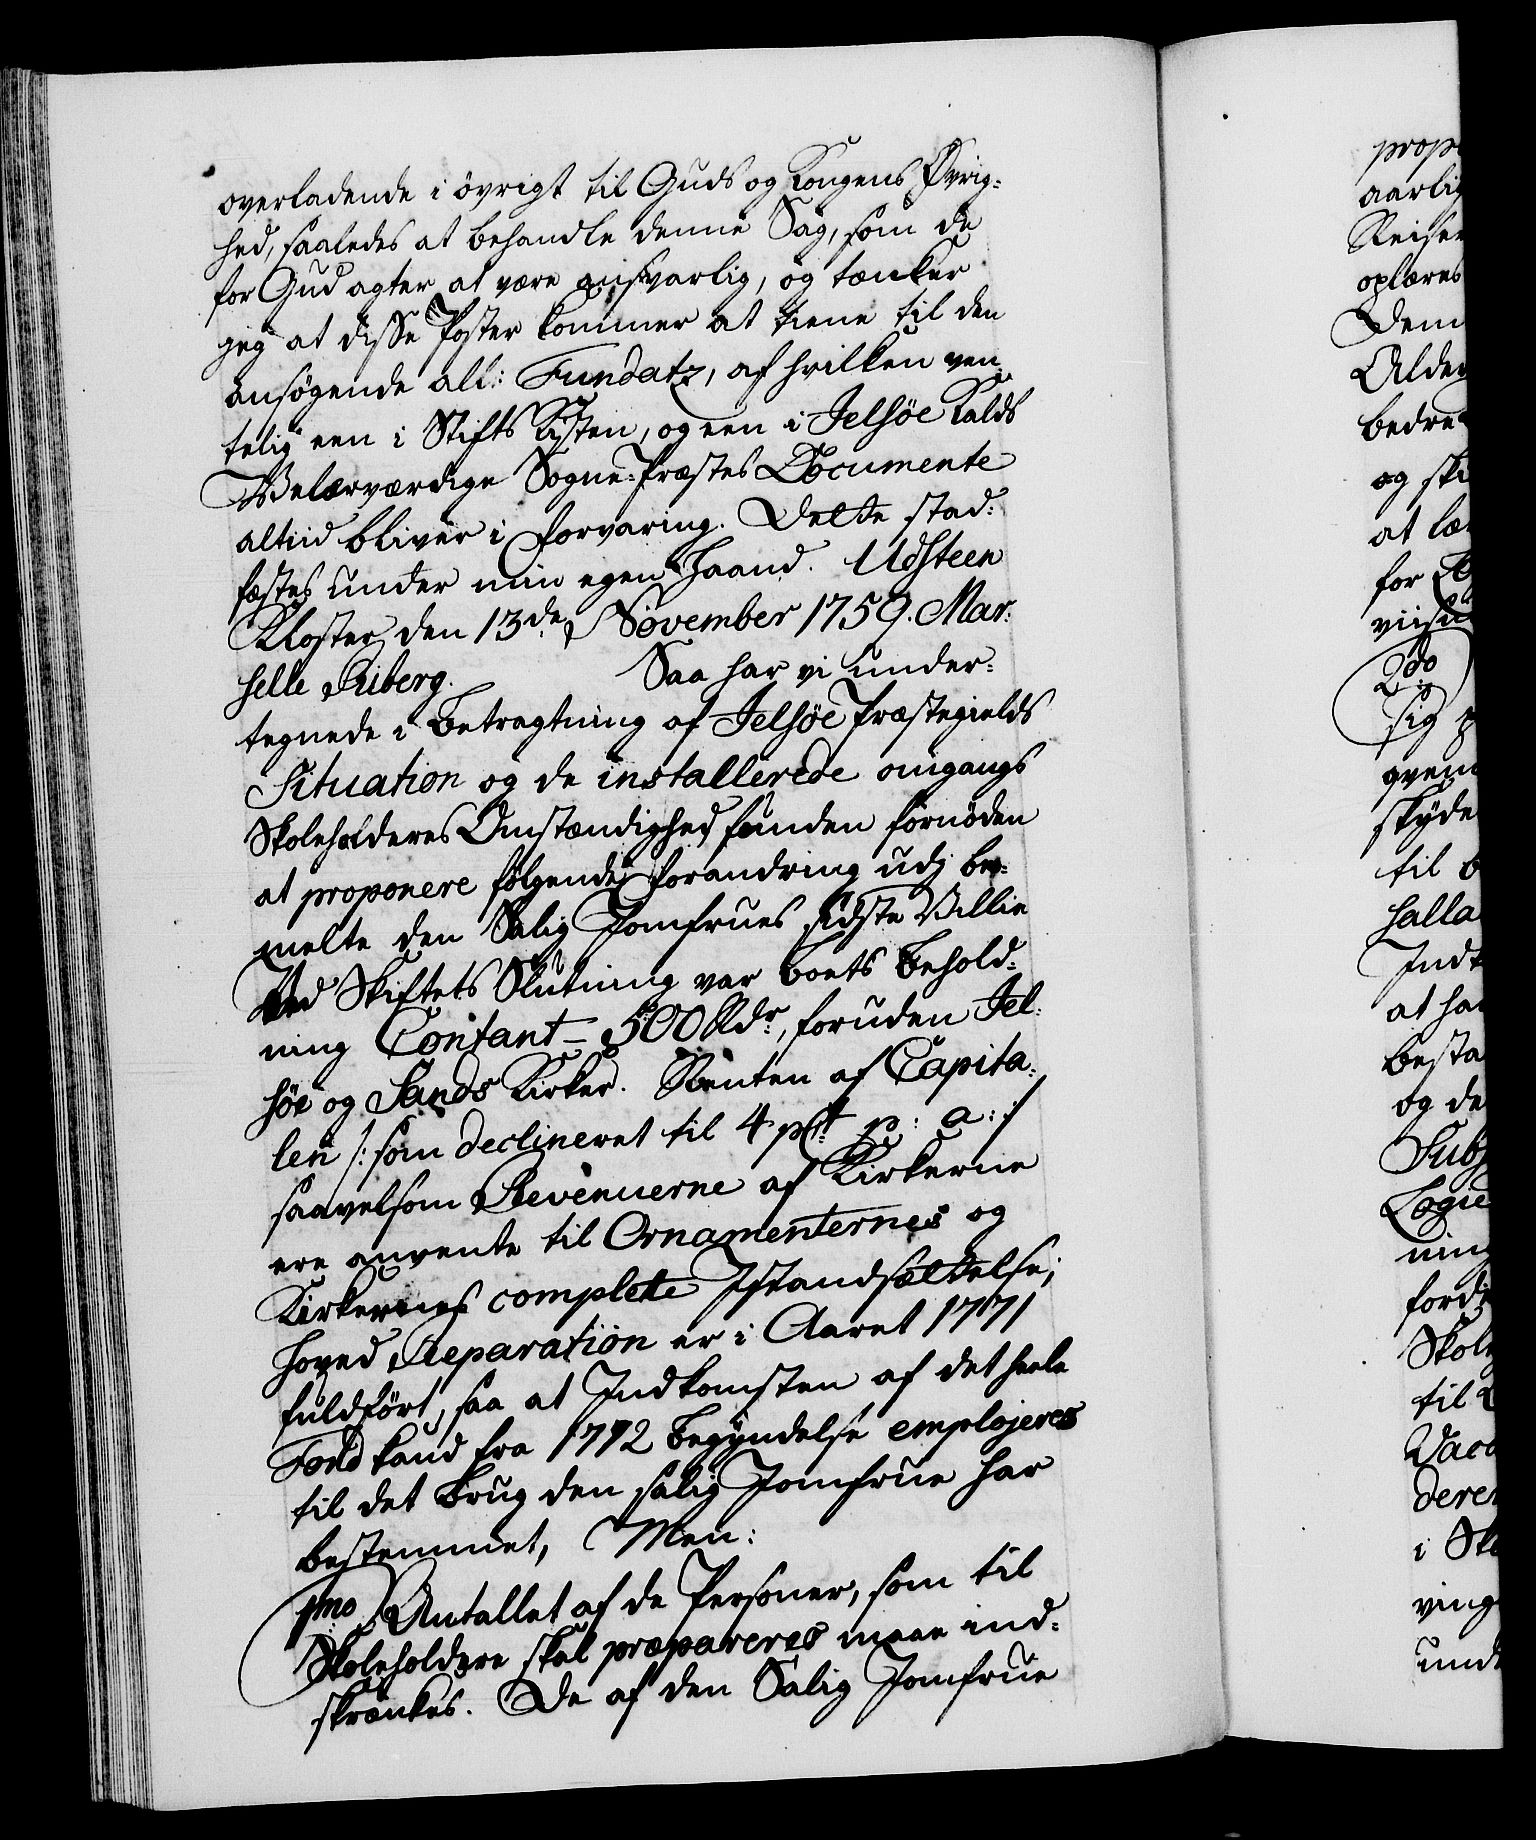 overladende i øvrigt til Guds og Kongens Øvrig=
hed, saaledes at behandle denne Sag, som de
for Gud agter at være ansvarlig, og tænker
jeg at disse Poster kommer at tiene til den
ansøgende all: Fundatz, af hvilken ven=
telig een i Stifts Kisten, og een i Jelsøe Kalds
Velærværdige Sogne-Præstes Documente
altiid bliver i forvaring. Dette stad=
fæstes under min egen Haand. Udsteen
Kloster den 13de November 1759. Mar=
selle Siiberg. Saa har vi under=
tegnede i Betragtning af Jelsøe Præstegields
Situation og de installerede omgangs
Skoleholderes Omstændighed funden fornøden
at proponere følgende forandring udj be=
melte den Salig Jomfrues sidste Villie
Ved Skiftets Slutning var boets Behold=
ning Contant = 500 Rdr, foruden Jel=
søe og Sands Kirker. Renten af Capita=
len /: som declineret til 4 pCt p: a: :/
saavelsom Revenuerne af Kirkerne
ere anvente til Ornamenternes og
Kirkernes complette Istandsættelse;
hoved Reparation er i Aaret 1771
fuldført, saa at Indkomsten af det heele
Fond kand fra 1772 begyndelse emplojeres
til det brug den salig Jomfrue har
bestemmet, Men:
1mo Antallet af de Personer, som til
Skoleholdere skal præpareres maae ind=
skrænkes. De af den Salig Jomfrue
aarlig
oplæres
Dem
bedre
og ski
at læ
for
2do
sig
skyde
til
at ha
besta
og de
ning
til
i Sk